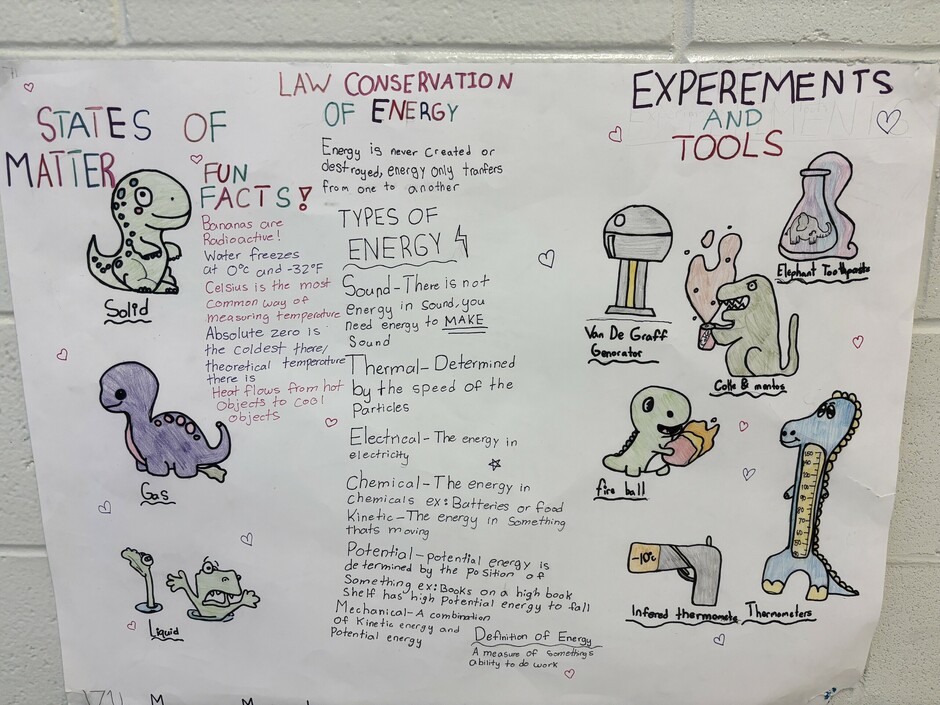 STATES OF
MATTER
Solid
Gas
Liquid
FUN
FACTS!
Bananas are
Radioactive!
Water freezes
at 0°c and -32°F
Celsius is the most
common way of
measuring temperature
Absolute zero is
the coldest there/
theoretical temperature
there is
Heat flows from hot
Objects to cool
objects
LAW CONSERVATION
OF ENERGY
Energy is never created or
destroyed, energy only tranfers
from one to another
TYPES OF
ENERGY
Sound-There is not
energy in sound, you
need energy to MAKE
Sound
Thermal-Determined
by the speed of the
Particles
Electrical-The energy in
electricity
Chemical-The energy in
chemicals ex: Batteries or food
Kinetic-The energy in Something
thats moving
Potential-potential energy is
determined by the position of
Something ex: Books on a high book
shelf has high Potential energy to fall
Mechanical-A combination
of Kinetic energy and
Potential energy
Definition of Energy
A measure of something's
ability to do work
EXPEREMENTS
AND
TOOLS
Elephant Toothpaste
Van De Graff
Genorator
Coke & mentos
fire ball
-10°c
Infered thermomete
Thermometers